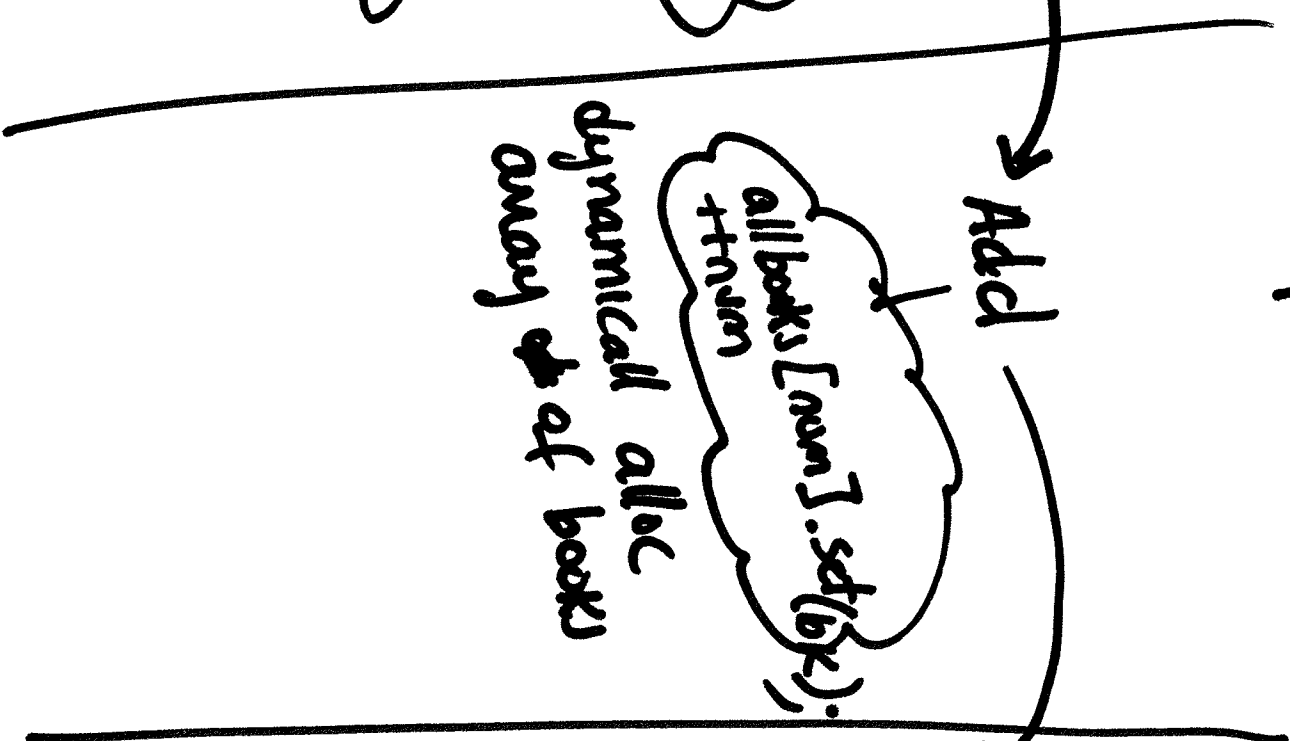 Add
allbooks[num].set(bk);
++num
dynamicall alloc
array of books